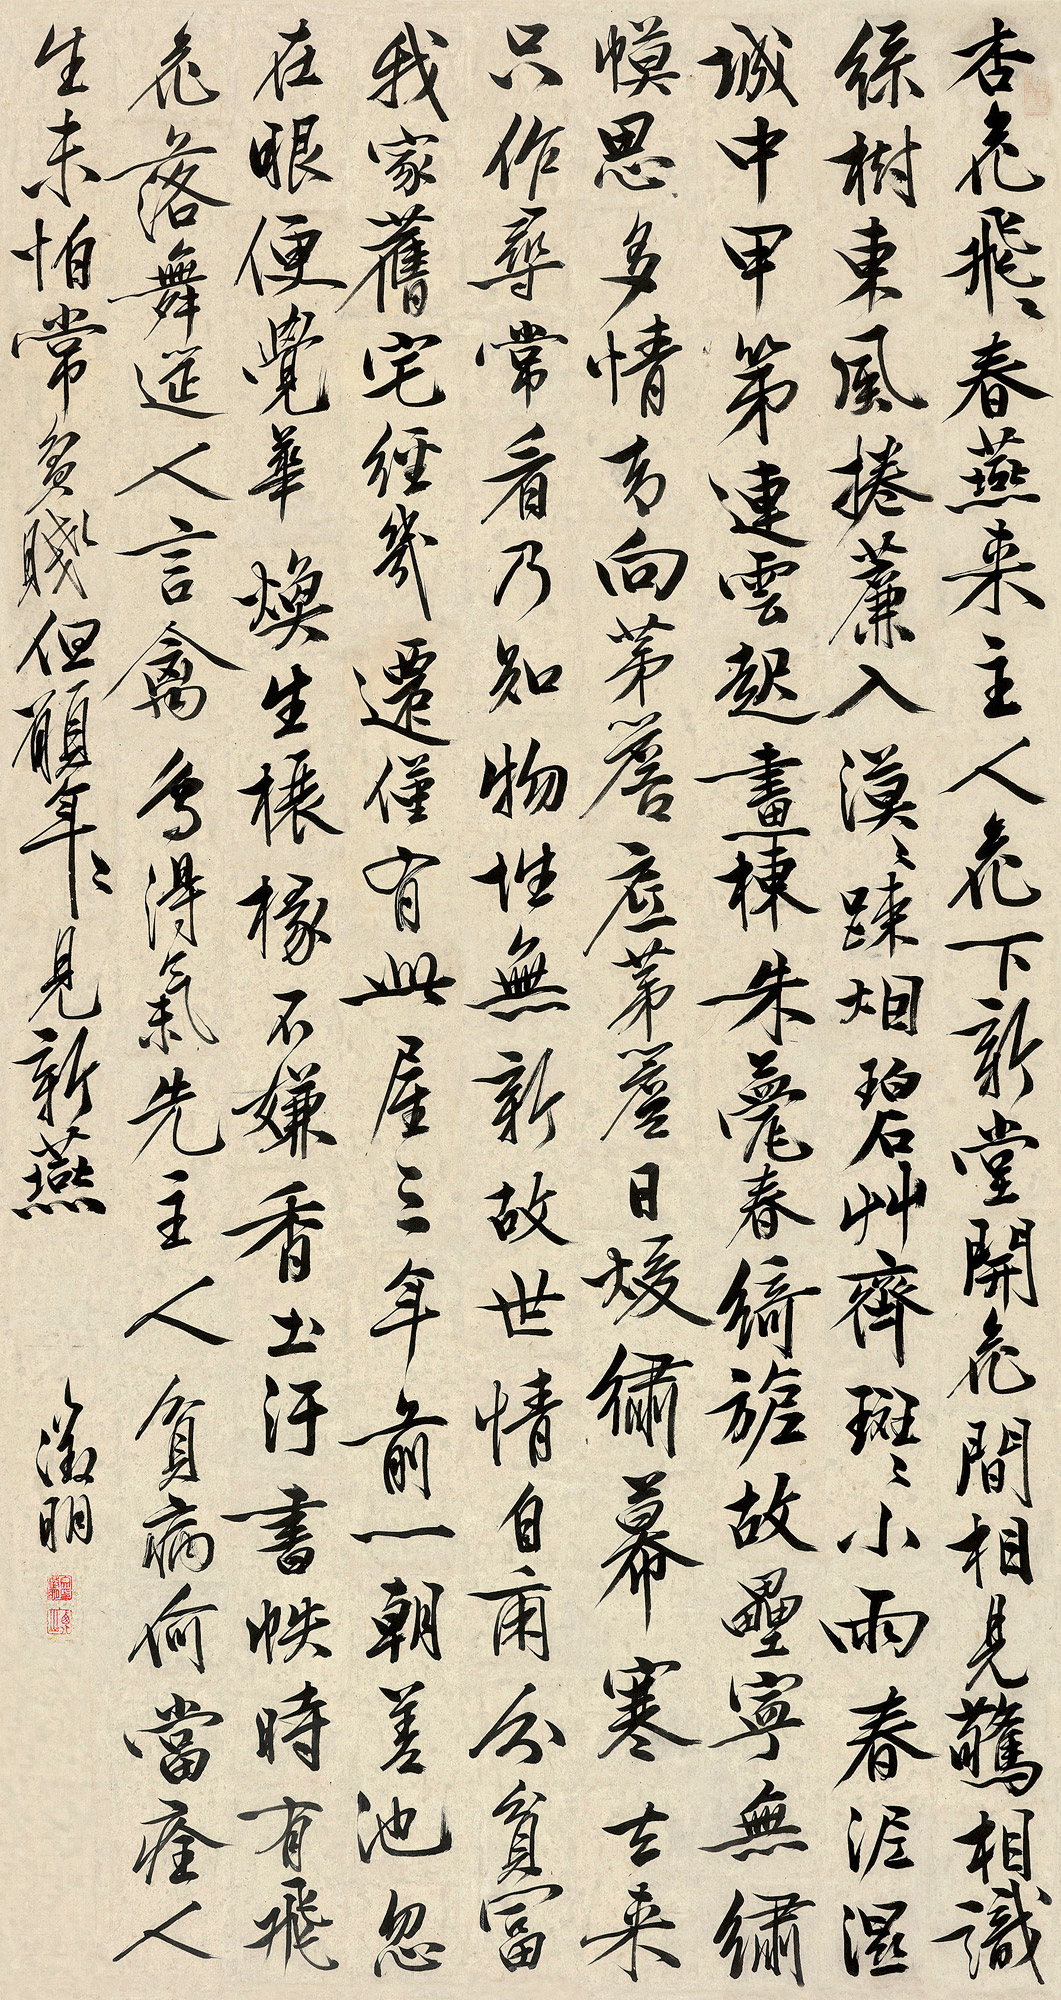 杏花飛〻春燕來主人花下新堂開花間相見驚相識
綠樹東風捲簾入漠〻疎烟碧艸齊斑〻小雨春泥濕
城中甲第連雲起畫棟朱甍春綺旎故壘寧無繡
幙思多情方向茅簷底茅簷日煖繡幕寒去來
只作尋常看乃知物性無新故世情自爾分貧富
我家舊宅經幾遷僅有此屋三年前一朝差池忽
在眼便覺華煥生榱椽不嫌香土汙書帙時有飛
花落舞筵人言禽鳥得氣先主人貧病何當痊人
生未怕常貧賤但願年〻見新燕
徵明